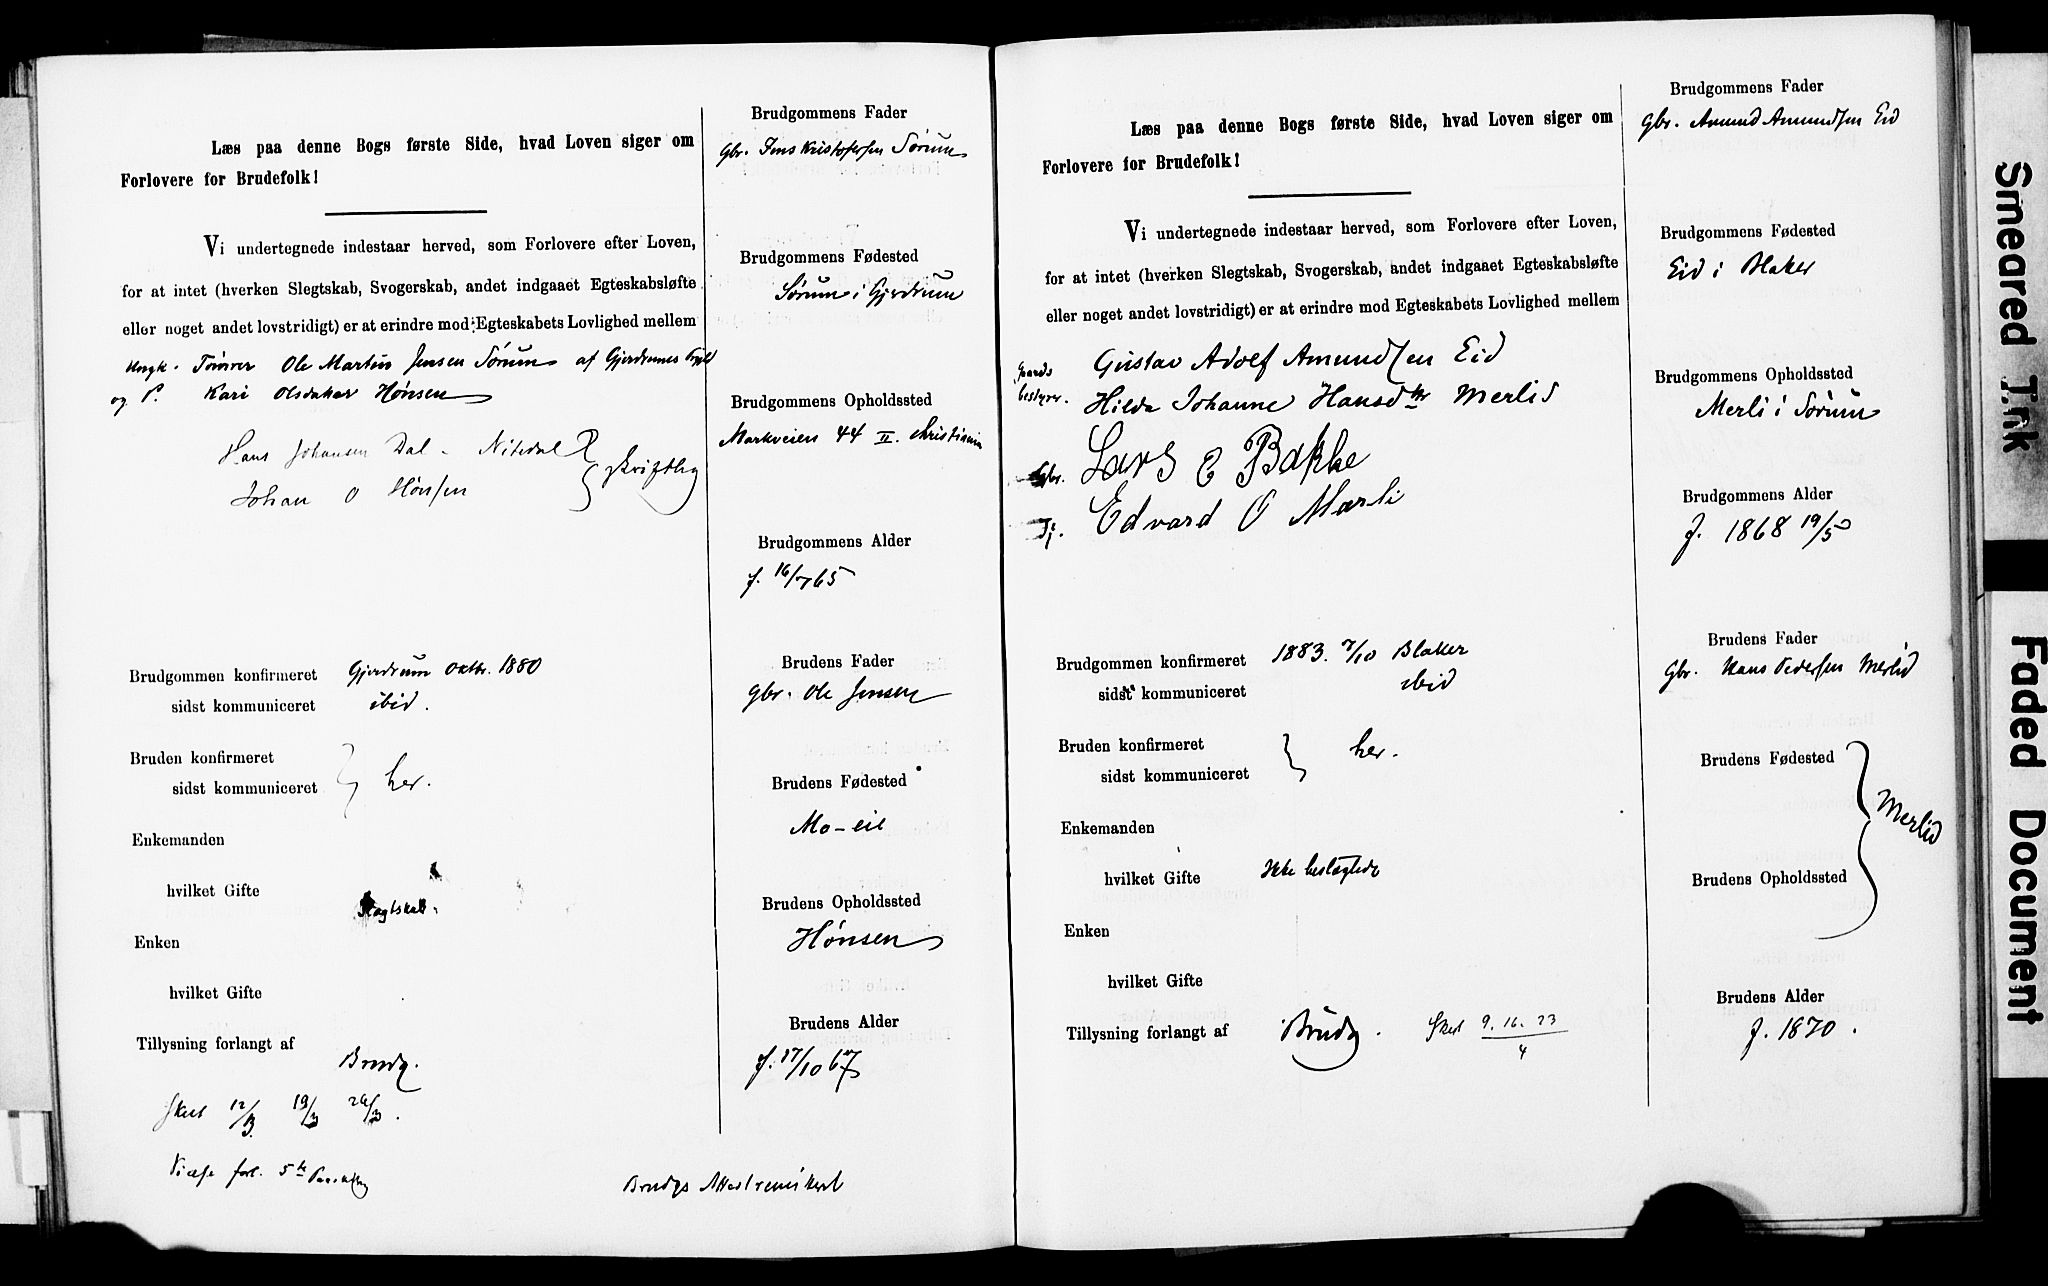 Læs paa denne Bogs første Side, hvad Loven siger om
Forlovere for Brudefolk!
Vi undertegnede indestaar herved, som Forlovere efter Loven,
for at intet (hverken Slegtskab, Svogerskab, andet indgaaet Egteskabsløfte
eller noget andet lovstridigt) er at erindre mod Egteskabets Lovlighed mellem
Ungk. Tømrer Ole Martin Jensen Sørum af Gjerdrums
og P. Kari Olsdatter Hønsen
Hans Johansen Dal - Nitedal
Johan O Hønsen
Brudgommen konfirmeret Gjerdrum oktbr. 1880
sidst kommuniceret ibid.
Bruden konfirmeret
sidst kommuniceret } her.
Enkemanden
hvilket Gifte
Slagtskab
Enken
hvilket Gifte
Tillysning forlangt af
Brudg.
Skeet 12/3 19/3 26/3.
forl. 5te
Brudgommens Fader
Gbr. Jens Kristofersen Sørum
Brudgommens Fødested
Sørum i Gjerdrum
Brudgommens Opholdssted
Markveien 44 II. Christiania
Brudgommens Alder
f. 16/7 65
Brudens Fader
Gbr. Ole Jensen
Brudens Fødested
Mo-eie
Brudens Opholdssted
Hønsen
Brudens Alder
f. 17/10 67
Brudgs
Læs paa denne Bogs første Side, hvad Loven siger om
Forlovere for Brudefolk!
Vi undertegnede indestaar herved, som Forlovere efter Loven,
for at intet (hverken Slegtskab, Svogerskab, andet indgaaet Egteskabsløfte
eller noget andet lovstridigt) er at erindre mod Egteskabets Lovlighed mellem
Gaards Gustav Adolf Amundsen Eid
bestyrer. Hilda Johanne Hansdtr Merlid
Gbr. Lars O Bakke
Edvard O Mærli
Brudgommen konfirmeret 1883. 7/10 Blaker
sidst kommuniceret ibid
Bruden konfirmeret
sidst kommuniceret } her.
Enkemanden
hvilket Gifte Ikke beslægtede
Enken
hvilket Gifte
Tillysning forlangt af Brudg. Skeet 9. 16. 23
4
Brudgommens Fader
Gbr. Amund Amundsen Eid
Brudgommens Fødested
Eid i Blaker
Brudgommens Opholdssted
Merli i Sørum
Brudgommens Alder
f. 1868 19/5
Brudens Fader
Gbr. Hans Pedersen Merlid
Brudens Fødested
Merlid
Brudens Opholdssted
Brudens Alder
f. 1870.
Smeared Ink
Faded Document